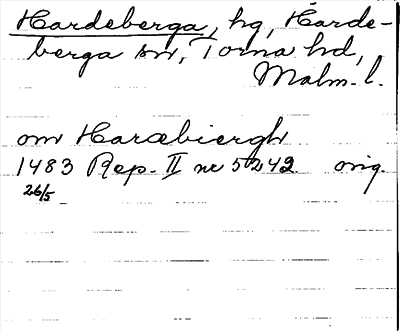 Hardeberga, hg, Harde-
berga sn, Torna hd,
Malm. l.
om Haræbiergh
1483 Rep. II nr 5242 orig.
26/5